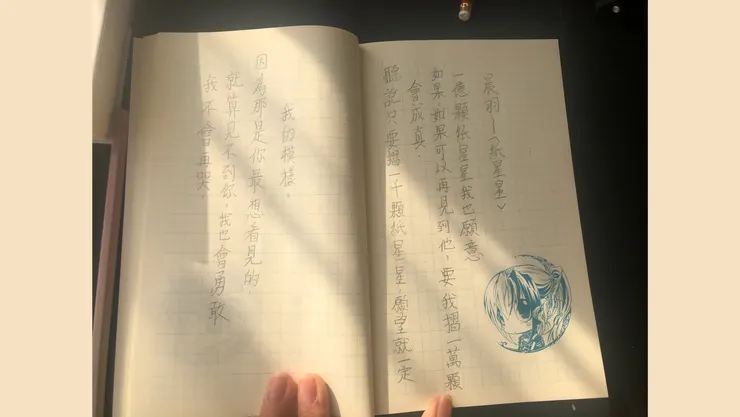 我不會再哭,
就算見不到你,我也會勇敢
因為那是你最想看見的,
我的模樣。
聽說只要摺一千顆紙星星,願望就一定
會成真.
如果,如果可以再見到他,要我摺一萬顆
一億顆紙星星我也願意
晨羽—〈紙星星〉